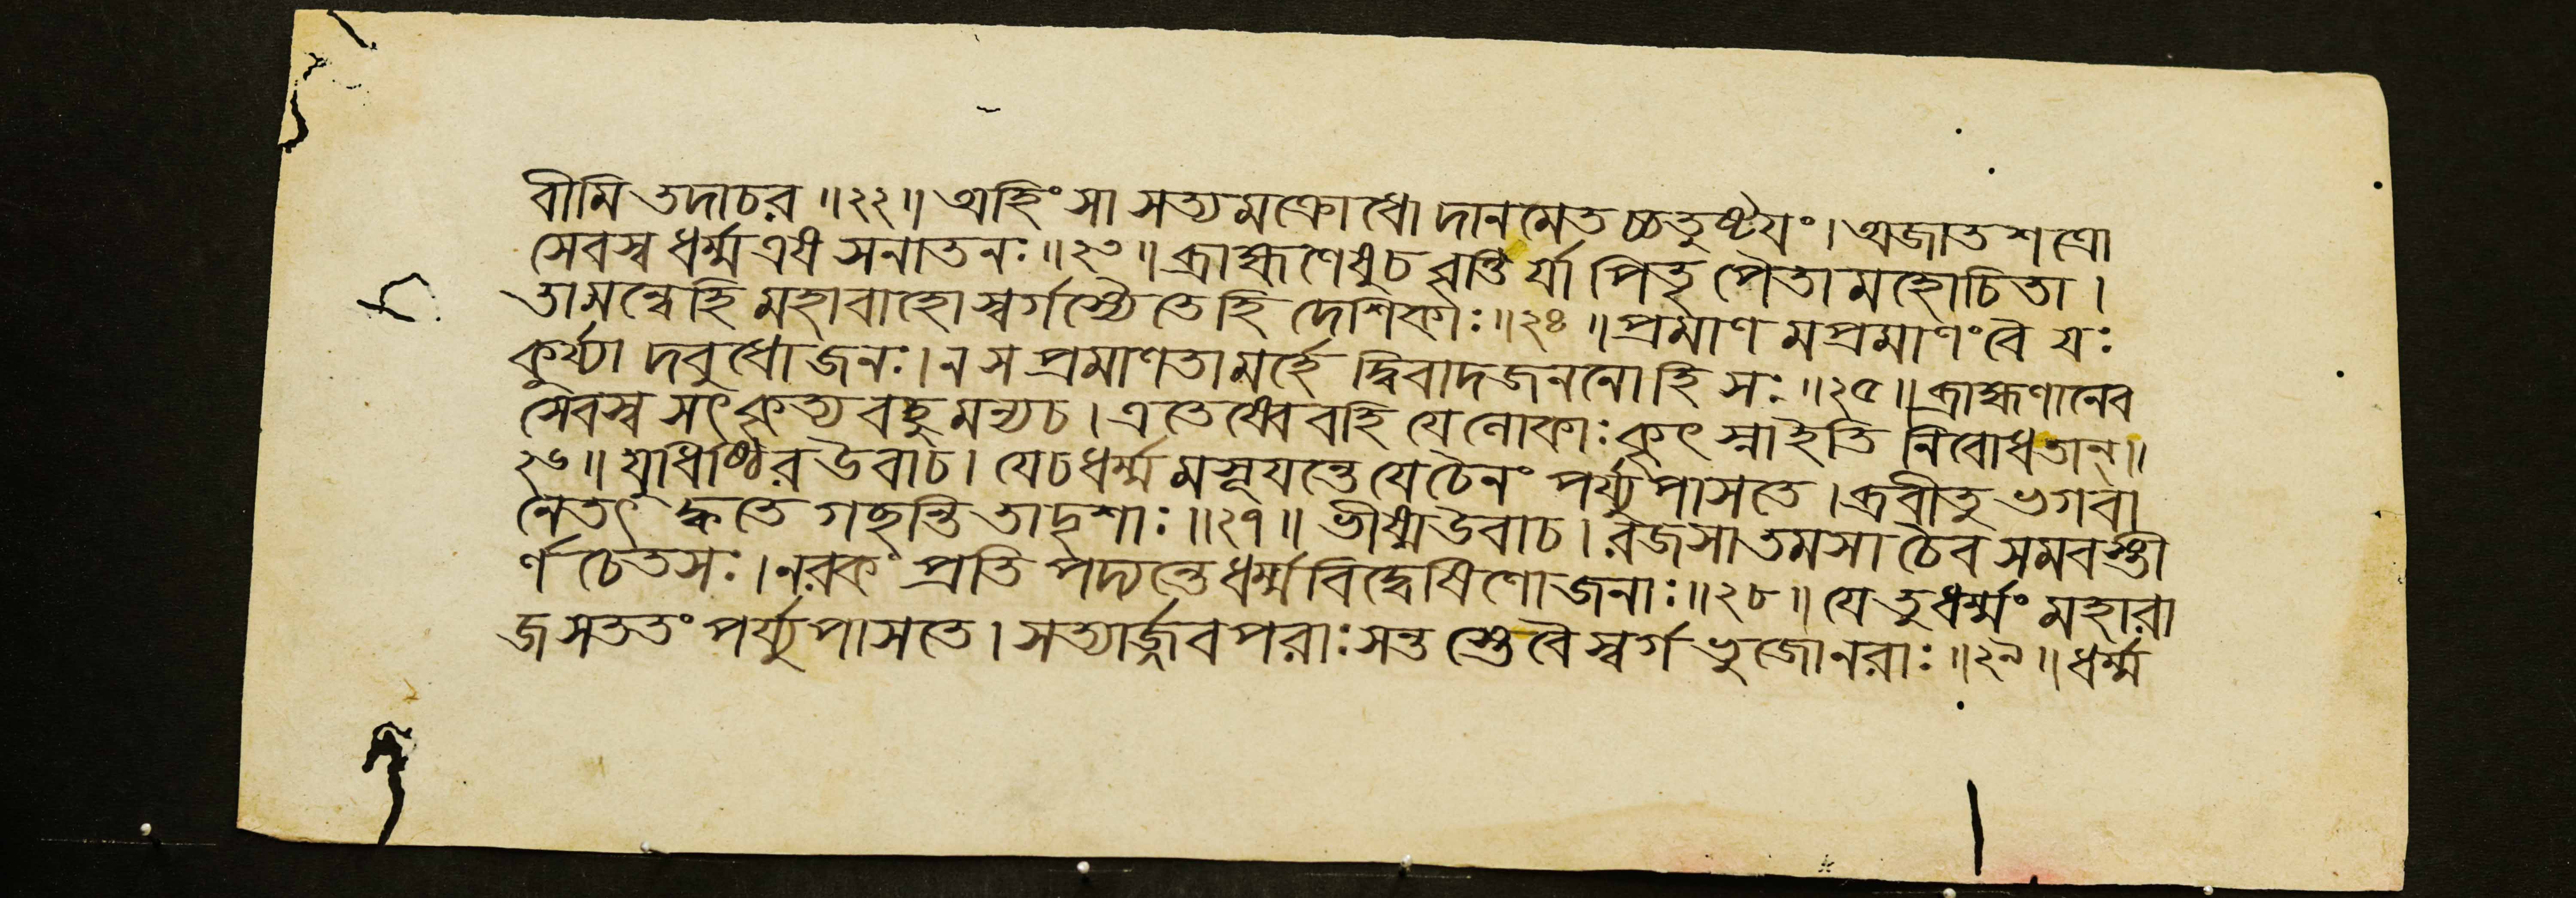 বীমি তদাচর ॥২২॥ অহিংসা সত্যমক্রোধো দানমেতচ্চতুষ্টয়ং। অজাতশত্রো
সেবস্ব ধর্ম্ম এষ সনাতনঃ ॥২৩॥ ব্রাহ্মণেষুচ বৃত্তির্যা পিতৃপৈতামহোচিতা।
তামন্বেহি মহাবাহো স্বর্গস্যৈতেহি দেশিকাঃ ॥২৪॥ প্রমাণমপ্রমাণংবৈ যঃ
কুর্য্যাদবুধোজনঃ। ন স প্রমাণতামর্হেদ্বিবাদজননোহি সঃ ॥২৫॥ ব্রাহ্মণানেব
সেবস্ব সৎকৃত্য বহুমন্যচ। এতেষ্বেবহি যে লোকাঃ কৃৎস্না ইতি নিবোধতান্॥
২৬॥ যুধিষ্ঠির উবাচ। যেচধর্ম্মমসূয়ন্তে যেচৈনং পর্য্যুপাসতে। ব্রবীতু ভগবা
নেতৎ ক্বতে গছন্তি তাদৃশাঃ ॥২৭॥ ভীষ্মউবাচ। রজসাতমসা চৈব সমবস্তী
র্ণচেতসঃ। নরকং প্রতিপদ্যন্তে ধর্ম্মবিদ্বেষিণোজনাঃ ॥২৮॥ যে তুধর্ম্মং মহারা
জ সততং পর্য্যুপাসতে। সত্যার্জ্জবপরাঃ সন্তস্তেবৈ স্বর্গভুজোনরাঃ ॥২৯॥ ধর্ম্ম